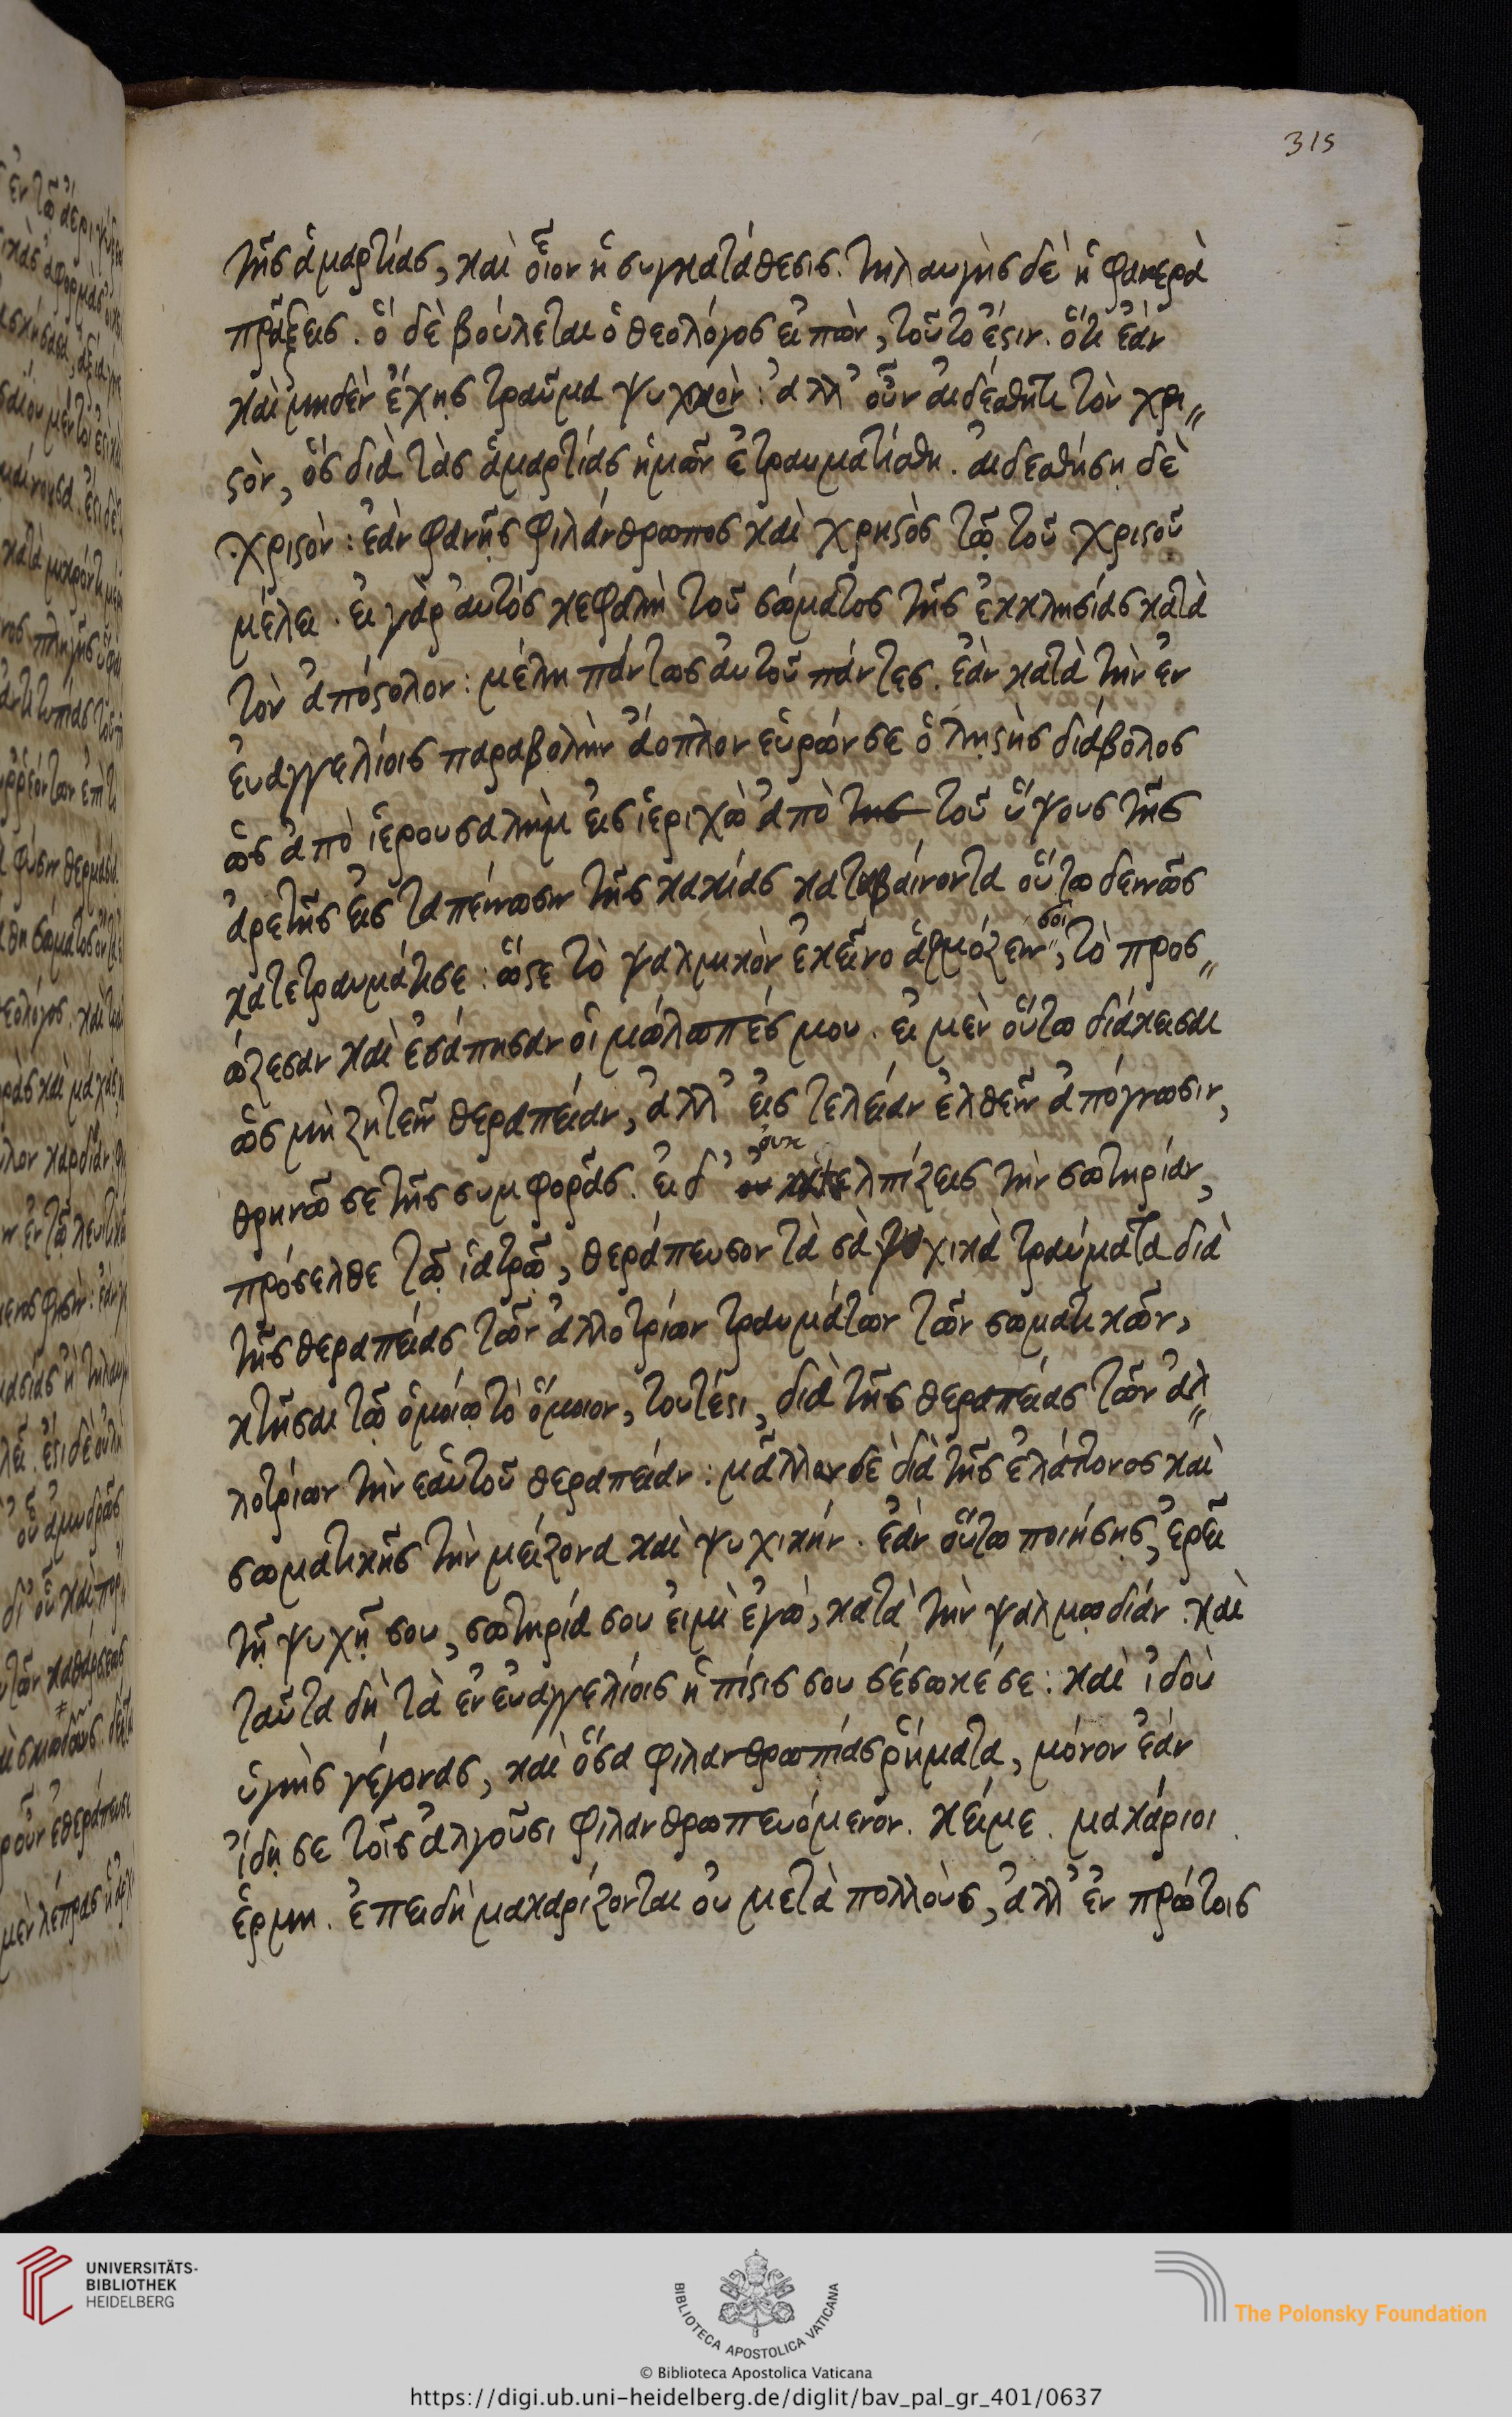 315
τῆς ἁμαρτίας, καὶ οἷον ἡ συγκατάθεσις. τηλαυγὴς δὲ ἡ φανερὰ
πρᾶξεις. ὃ δὲ βούλεται ὁ θεολόγος εἰπὼν, τοῦτο ἐστιν. ὅτι ἐὰν
καὶ μηδὲν ἔχῃς τραῦμα ψυχικὸν: ἀλλ' οὖν αἰδέσθητι τὸν χρι〃
στὸν, ὃς διὰ τὰς ἁμαρτίας ἡμῶν ἐτραυματίσθη. αἰδεσθήσῃ δὲ
χριστὸν: ἐὰν φανῇς φιλάνθρωπος καὶ χρηστὸς τῷ τοῦ χριστοῦ
μέλει. εἰ γὰρ αὐτὸς κεφαλὴ τοῦ σώματος τῆς ἐκκλησίας κατὰ
τὸν ἀπόστολον: μέλη πάντως αὐτοῦ πάντες. ἐὰν κατὰ τὴν ἐν
ἐυαγγελίοις παραβολὴν ἄοπλον εὑρών σε ὁ ληστὴς διάβολος
ὡς ἀπὸ ἱερουσαλὴμ εἰς ἱεριχὼ ἀπὸ της τοῦ ὕψους τῆς
ἀρετῆς εἰς ταπείνωσιν τῆς κακίας καταβαίνοντα οὕτω δεινῶς
κατετραυμάτισε: ὥστε τὸ ψαλμικὸν ἐκεῖνο ἁρμόζειν σοι, τὸ προσ〃
ώζεσαν καὶ ἐσάπησαν οἱ μώλωπές μου. εἰ μὲν οὕτω διάκεισαι
ὡς μὴ ζητεῖν θεραπείαν, ἀλλ' εἰς τελείαν ἐλθεῖν ἀπόγνωσιν,
θρηνῶ σε τῆς συμφορᾶς. εἰ δ' οὐκ ἐλπίζεις τὴν σωτηρίαν,
πρόσελθε τῷ ἰατρῷ, θεράπευσον τὰ σὰ ψυχικὰ τραύματα διὰ
τῆς θεραπείας τῶν ἀλλοτρίων τραυμάτων τῶν σωματικῶν,
κτῆσαι τῷ ὁμοίῳ τὸ ὅμοιον, τουτέστι, διὰ τῆς θεραπείας τῶν ἀλ〃
λοτρίων τὴν ἑαυτοῦ θεραπείαν: μᾶλλον δὲ διὰ τῆς ἐλάττονος καὶ
σωματικῆς τὴν μείζονα καὶ ψυχικήν. ἐὰν οὕτω ποιήσῃς, ἐρεῖ
τῇ ψυχῇ σου, σωτηρία σου εἰμὶ ἐγώ, κατὰ τὴν ψαλμῳδίαν. καὶ
ταῦτα δὴ τὰ ἐν ἐυαγγελίοις ἡ πίστις σου σέσωκέ σε: καὶ ἰδοὺ
ὑγιὴς γέγονας, καὶ ὅσα φιλανθρωπίας ῥήματα, μόνον ἐάν
ἴδῃ σε τοῖς ἀλγοῦσι φιλανθρωπευόμενον. κείμε. μακάριοι.
ἑρμη. ἐπειδὴ μακαρίζονται οὐ μετὰ πολλοὺς, ἀλλ' ἐν πρώτοις
UNIVERSITÄTS-
BIBLIOTHEK
HEIDELBERG
BIBLIOTECA APOSTOLICA VATICANA
The Polonsky Foundation
© Biblioteca Apostolica Vaticana
https://digi.ub.uni-heidelberg.de/diglit/bav_pal_gr_401/0637